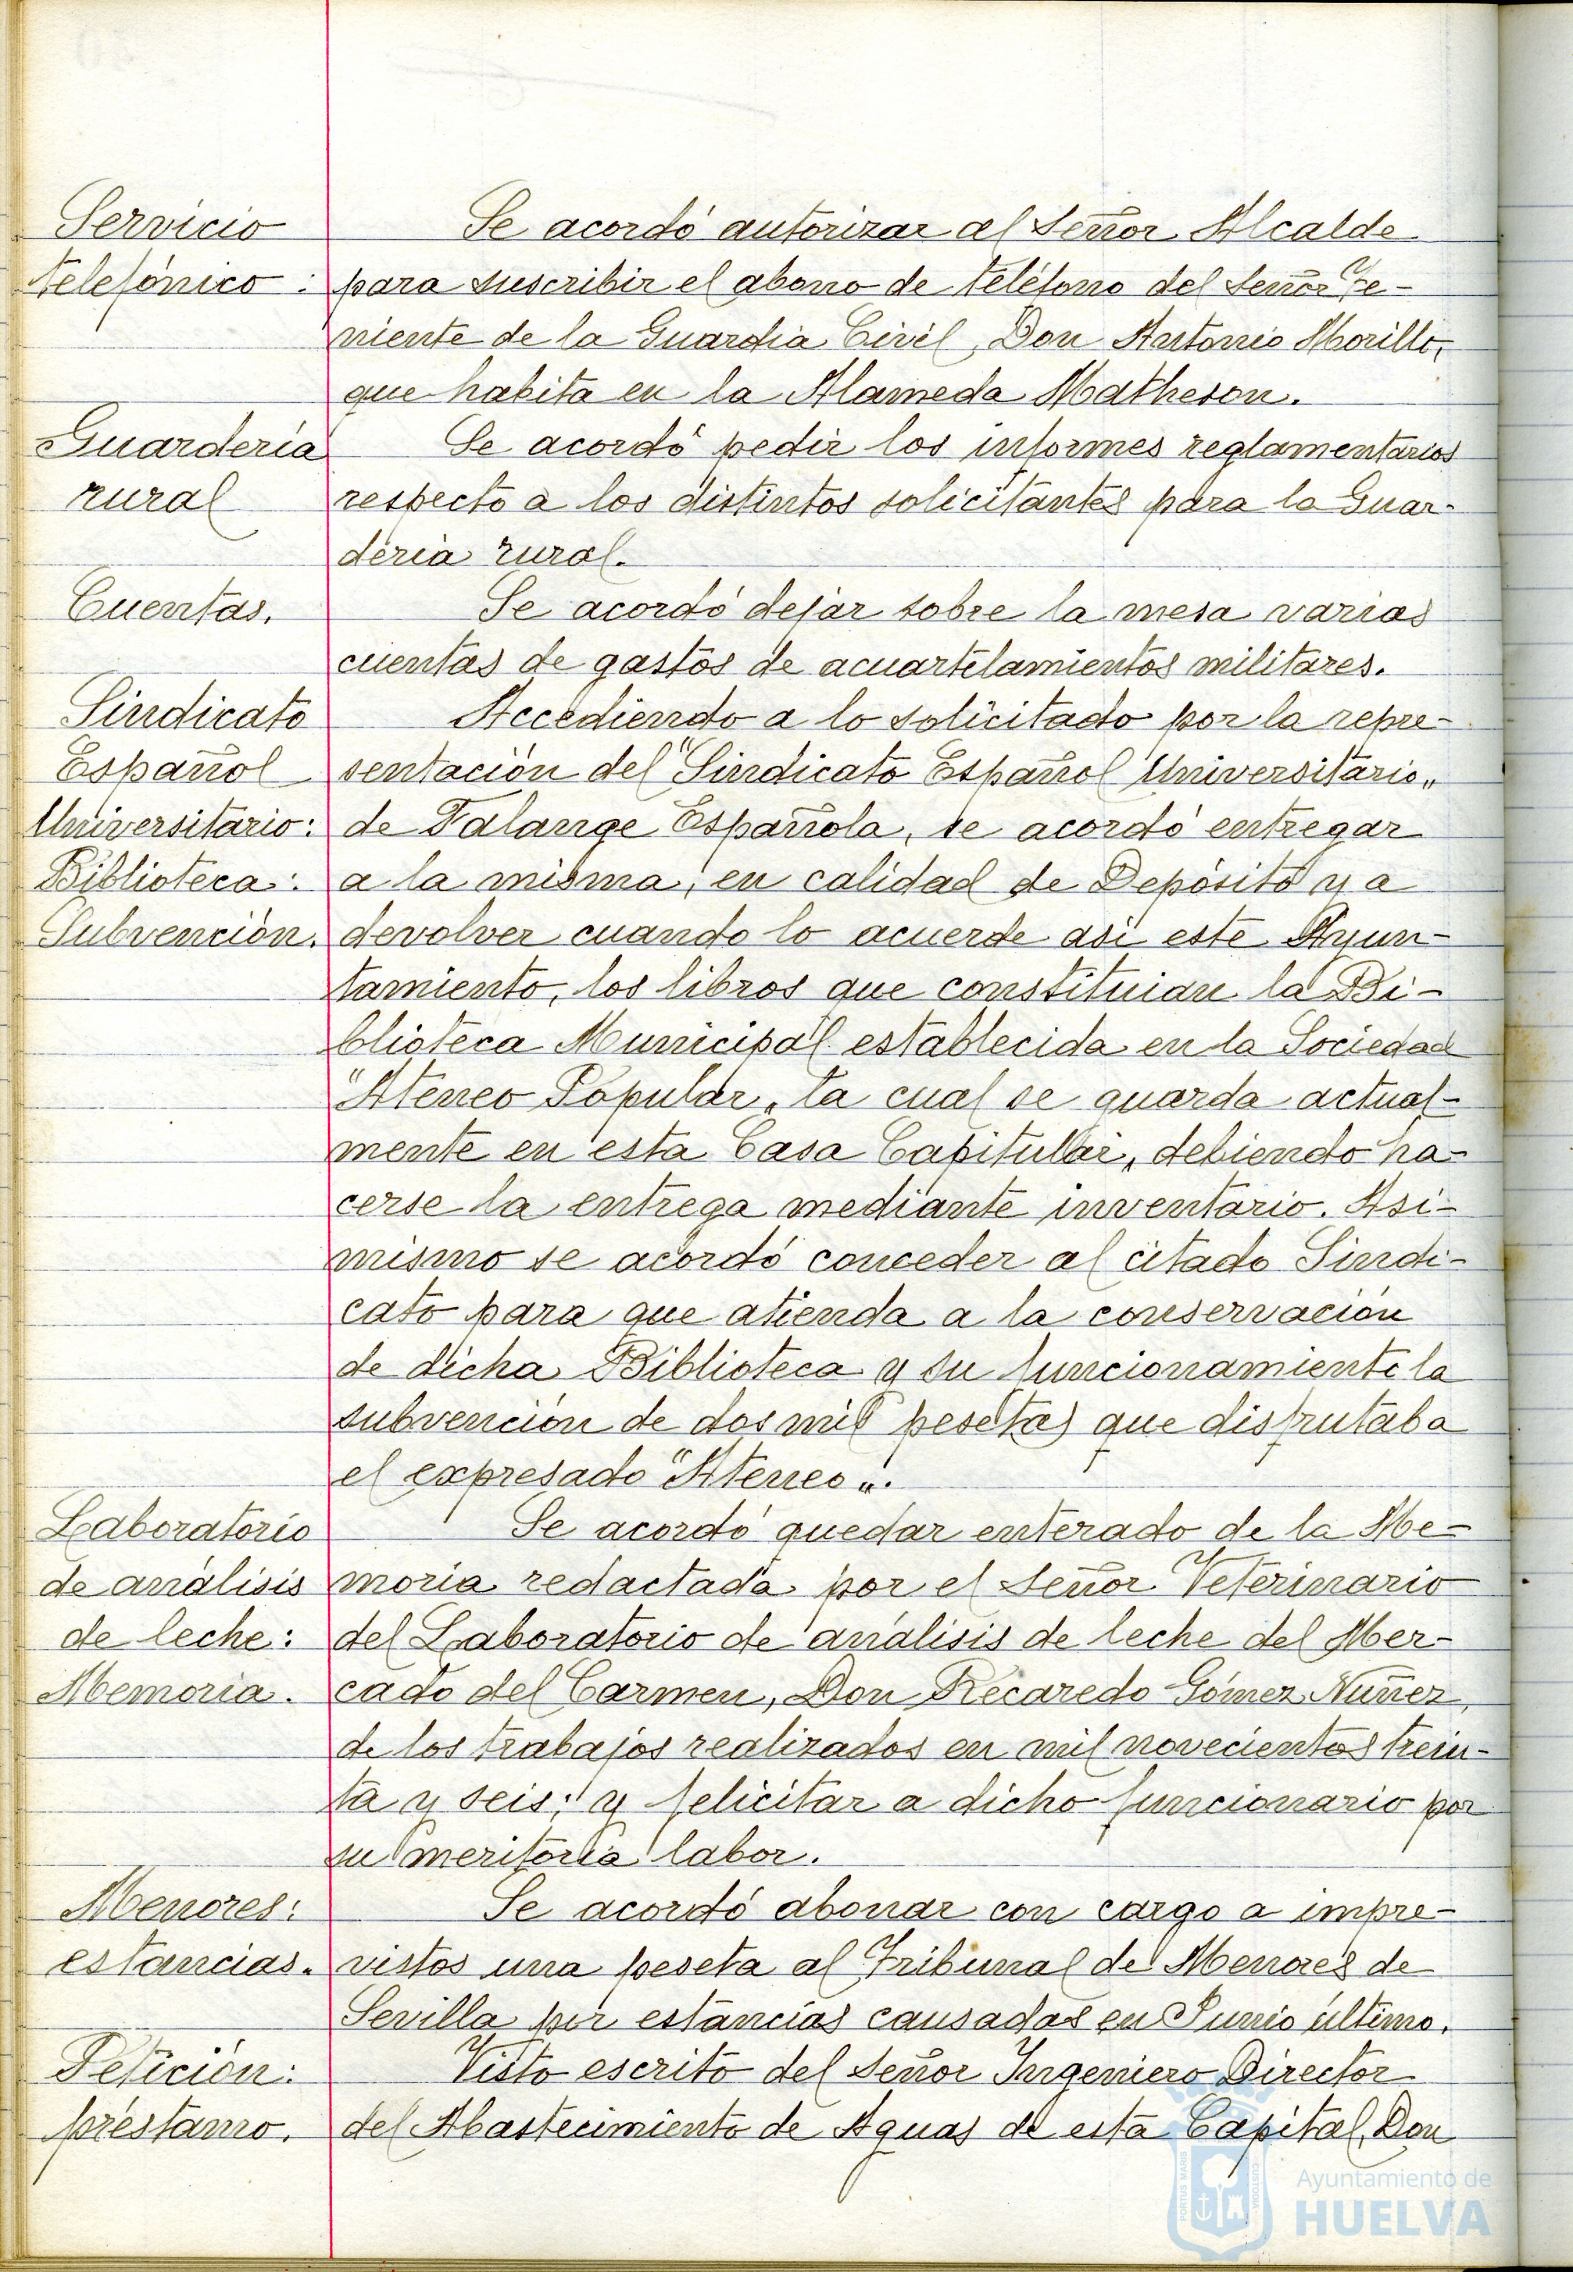 Servicio
telefónico:
Se acordó autorizar al Señor Alcalde
para suscribir el abono de teléfono del Señor Te-
niente de la Guardia Civil, Don Antonio Morillo,
que habita en la Alameda Matheson.
Guardería
rural
Se acordó pedir los informes reglamentarios
respecto a los distintos solicitantes para la Guar-
dería rural.
Cuentas.
Se acordó dejar sobre la mesa varias
cuentas de gastos de acuartelamientos militares.
Sindicato
Español
Universitario:
Biblioteca:
Subvención.
Accediendo a lo solicitado por la repre-
sentación del "Sindicato Español Universitario„
de Falange Española, se acordó entregar
a la misma, en calidad de Depósito y a
devolver cuando lo acuerde así este Ayun-
tamiento, los libros que constituian la Bi-
blioteca Municipal establecida en la Sociedad
"Ateneo Popular„ la cual se guarda actual-
mente en esta Casa Capitular, debiendo ha-
cerse la entrega mediante inventario. Asi-
mismo se acordó conceder al citado Sindi-
cato para que atienda a la conservación
de dicha Biblioteca y su funcionamiento la
subvención de dos mil pesetas que disfrutaba
el expresado "Ateneo„.
Laboratorio
de análisis
de leche:
Memoria.
Se acordó quedar enterado de la Me-
moria redactada por el Señor Veterinario
del Laboratorio de análisis de leche del Mer-
cado del Carmen, Don Recaredo Gómez Nuñez,
de los trabajos realizados en mil novecientos trein-
ta y seis; y felicitar a dicho funcionario por
su meritoria labor.
Menores:
estancias.
Se acordó abonar con cargo a impre-
vistos una peseta al Tribunal de Menores de
Sevilla por estancias causadas en Junio último.
Petición:
préstamo.
Visto escrito del Señor Ingeniero Director
del Abastecimiento de Aguas de esta Capital, Don
PORTUS MARIS
CUSTODIA
Ayuntamiento de
HUELVA